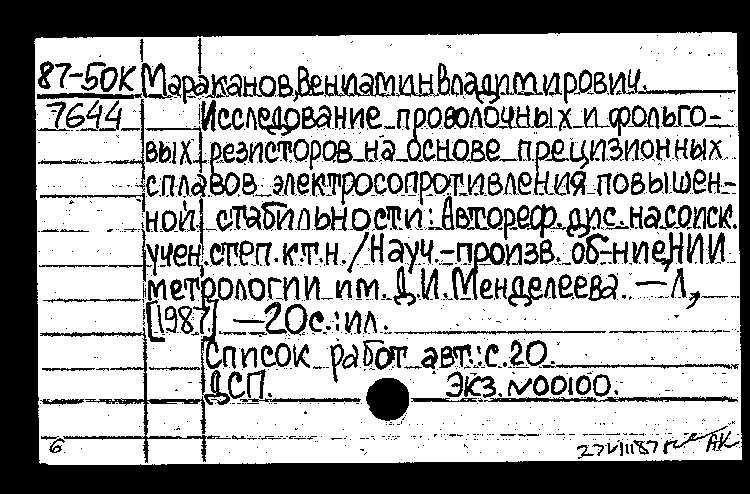 87-50К Мараканов, Вениамин Владимирович.
7644 Исследование проволочных и фольго-
вых резисторов на основе прецизионных
сплавов электросопротивления повышен-
ной стабильности: Автореф. дис. на соиск.
учен. степ. к.т.н. / Науч.-произв. об-ние, НИИ
метрологии им. Д.И. Менделеева. — Л.,
[1987] — 20с.: ил.
Список работ авт.: с. 20.
ДСП. Экз. №00100.
6
АК